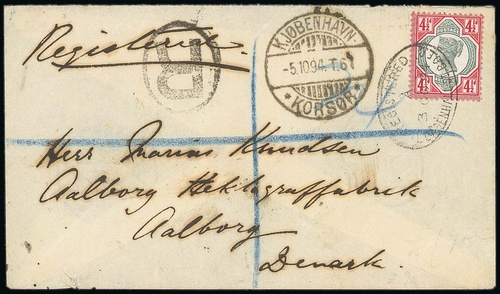 Registered
R
KJØBENHAVN-
-5.10.94. T.6
*KORSØR*
4½ 4½
4½ 4½
REGISTERED
Herr Marius Knudsen
Aalborg Hektograffabrik
Aalborg
Denark.